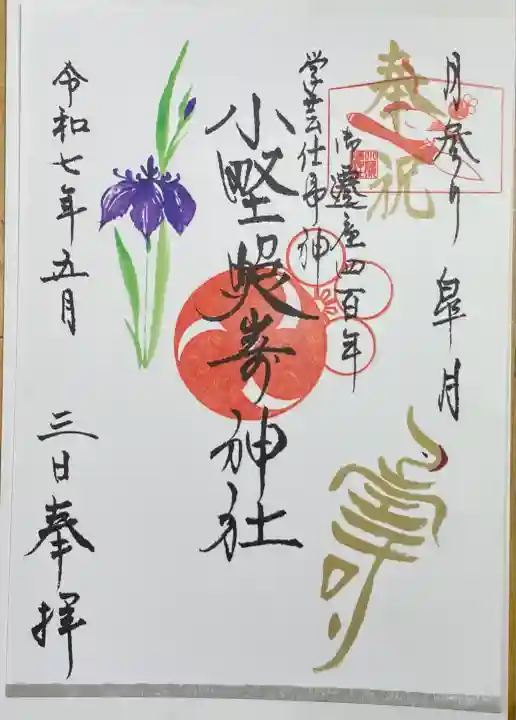 月参り 皐月
奉祝
壽
御遷座四百年
学芸仕事神
小野照崎神社
令和七年五月
三日奉拝